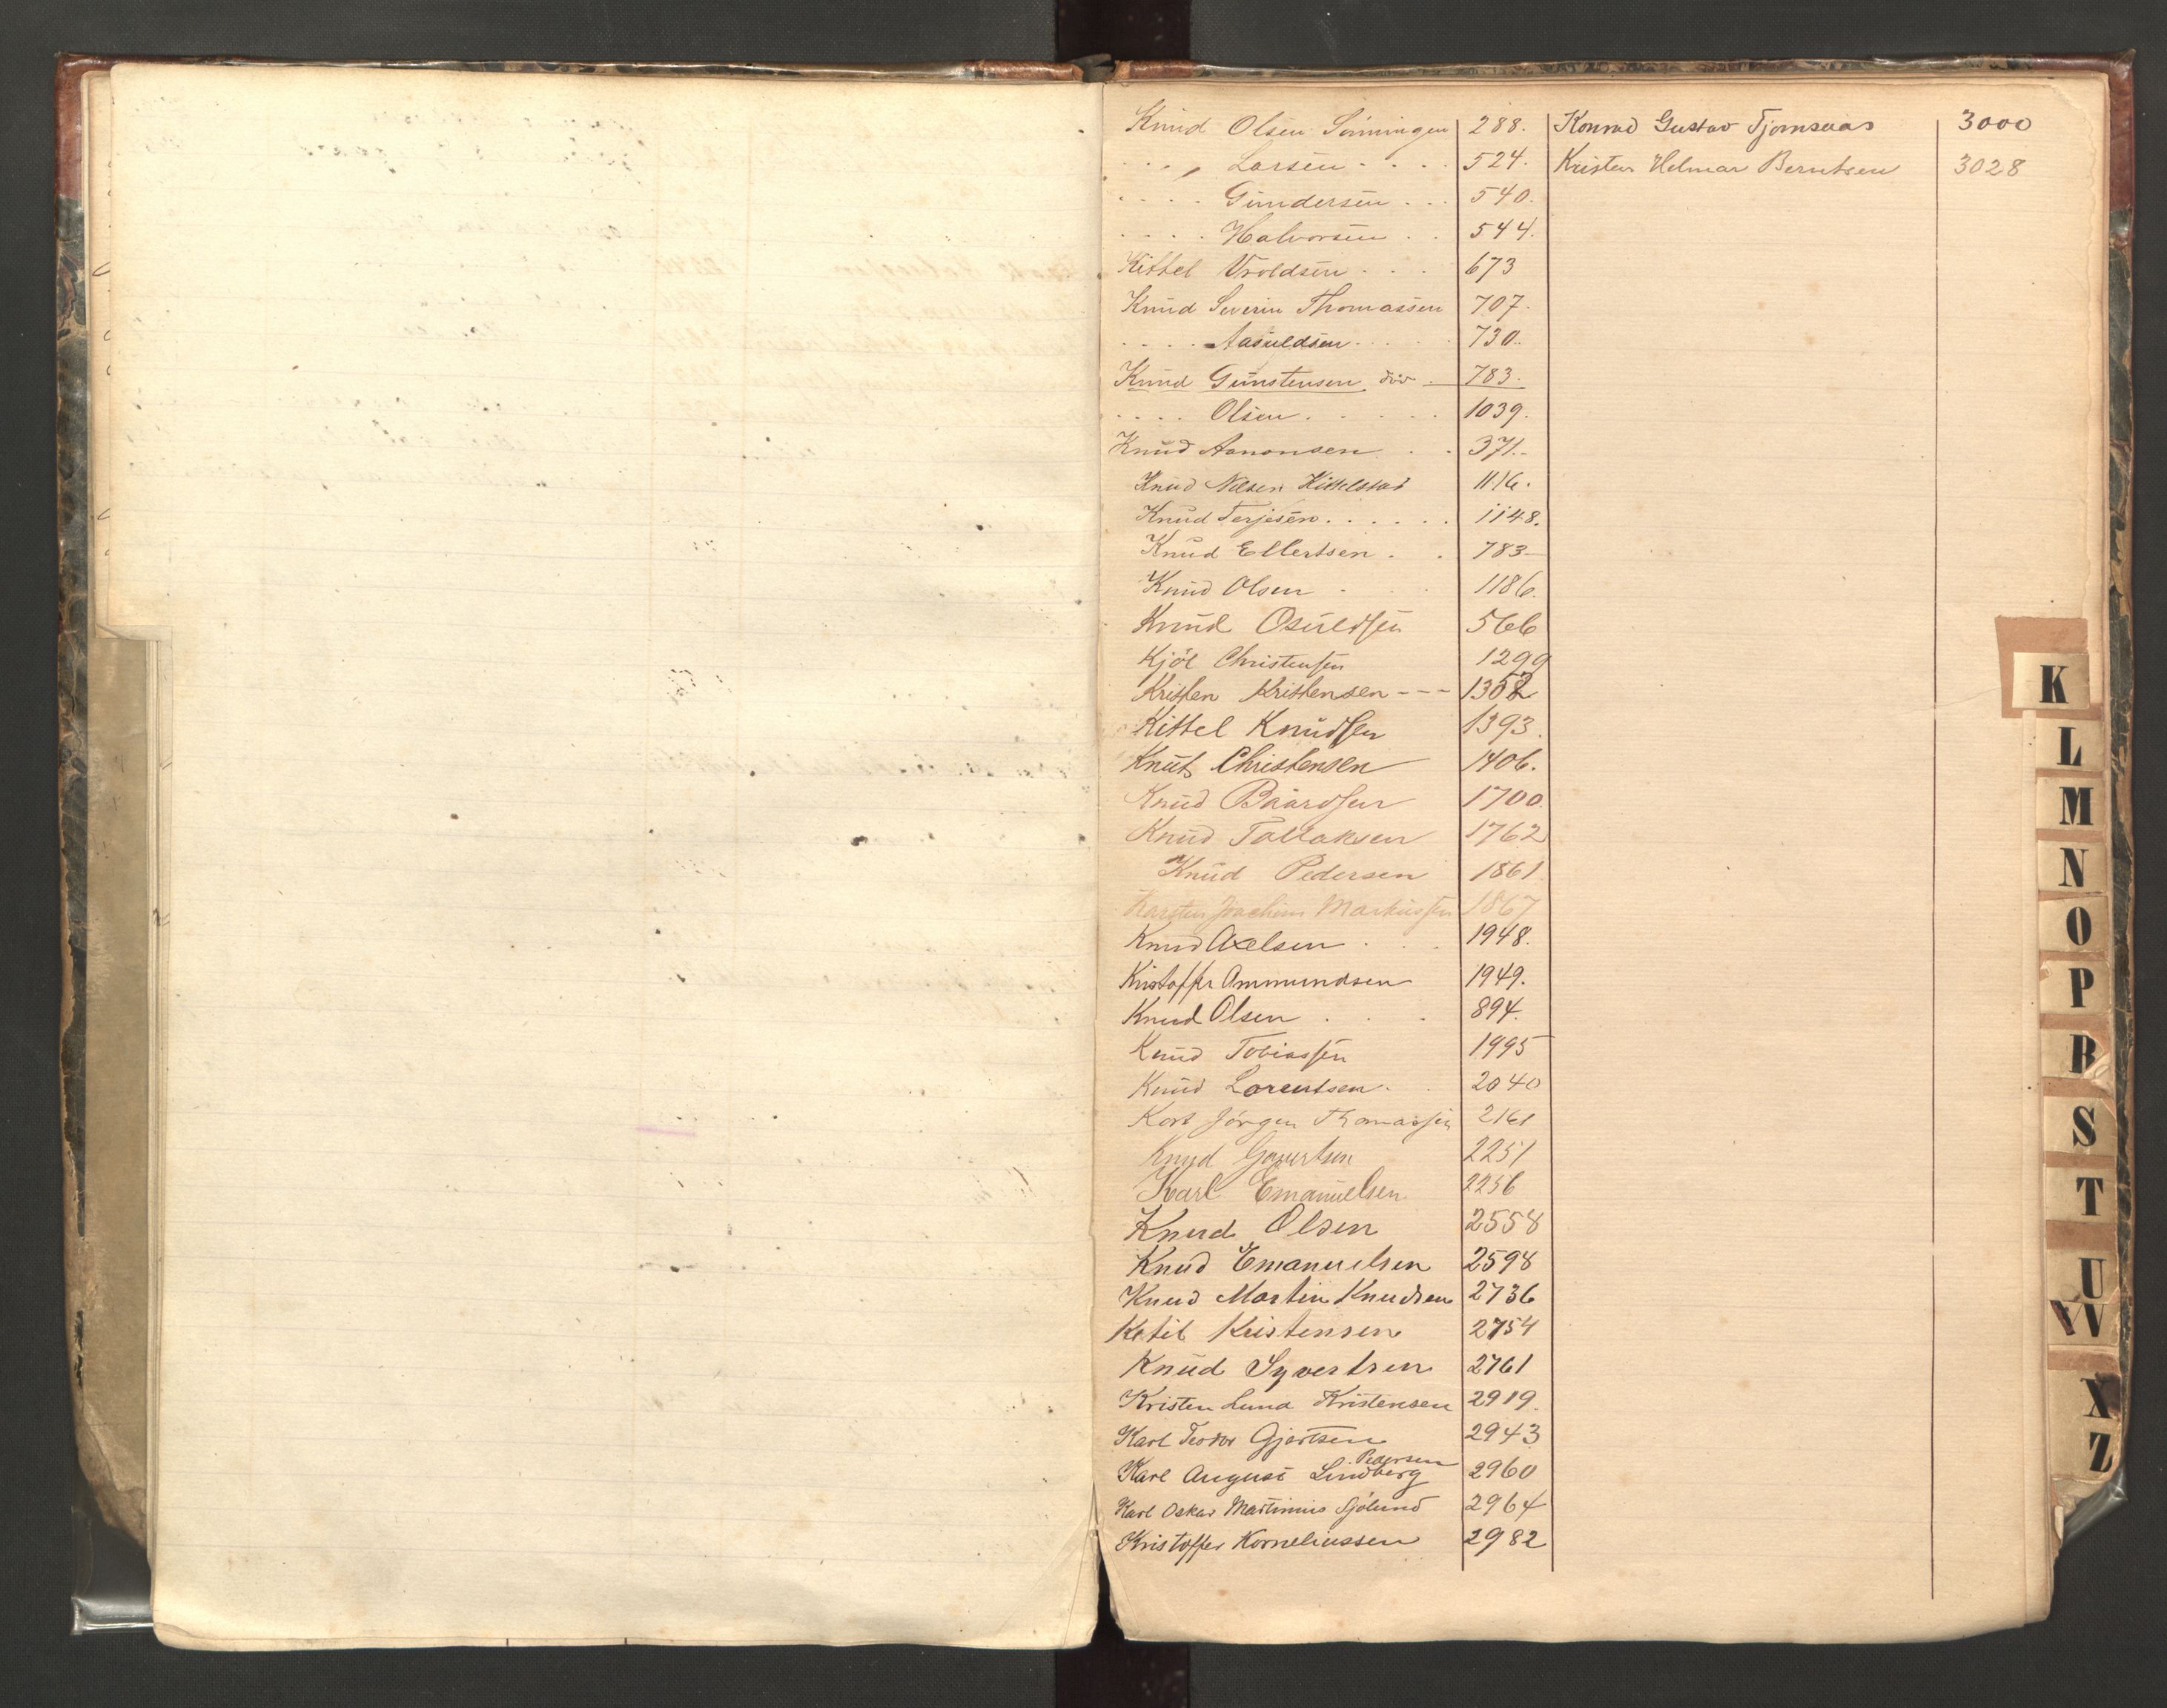 Knud Olsen Sönningen 288.
" Larsen 524.
Gundersen 540.
Halvorsen 544.
Kittel Vroldsen 673
Knud Severin Thomassen 707.
Aasuldsen 730.
Knud Gunstensen död 783.
Olsen 1039.
Knud Aanonsen 371.
Knud Nilsen Kittelstad 1116.
Knud Terjesen 1148.
Knud Ellertsen 783
Knud Olsen 1186.
Knud Osuldsen 566
Kjöl Christensen 1299
Kristen Kristensen --- 1308
Kittel Knudsen 1393.
Knut Christensen 1406.
Knud Baardsen 1700.
Knud Tallaksen 1762
Knud Pedersen 1861
Karsten Joachim Markussen 1867
Knud Axelsen 1948.
Kristoffer Ammundsen 1949.
Knud Olsen 894.
Knud Tobiassen 1995
Knud Lorentsen 2040
Kort Jörgen Thomassen 2161
Knud 2251
Karl Emanuelsen 2256
Knud Olsen 2558
Knud Emanuelsen 2598
Knud Martin Knudsen 2736
Ketil Kristensen 2754
Knud Syvertsen 2761
Kristen Lund Kristensen 2919.
Karl Teodor Gjertsen 2943
Pedersen
Karl August Lindberg 2960
Karl Oskar Martinius Sjölund 2964
Kristoffer Korneliussen 2982
Konrad Gustav Tjomsaas 3000
Kristen Helmar Berntsen 3028
K
L
M
N
O
P
R
S
T
U
W
X
Z